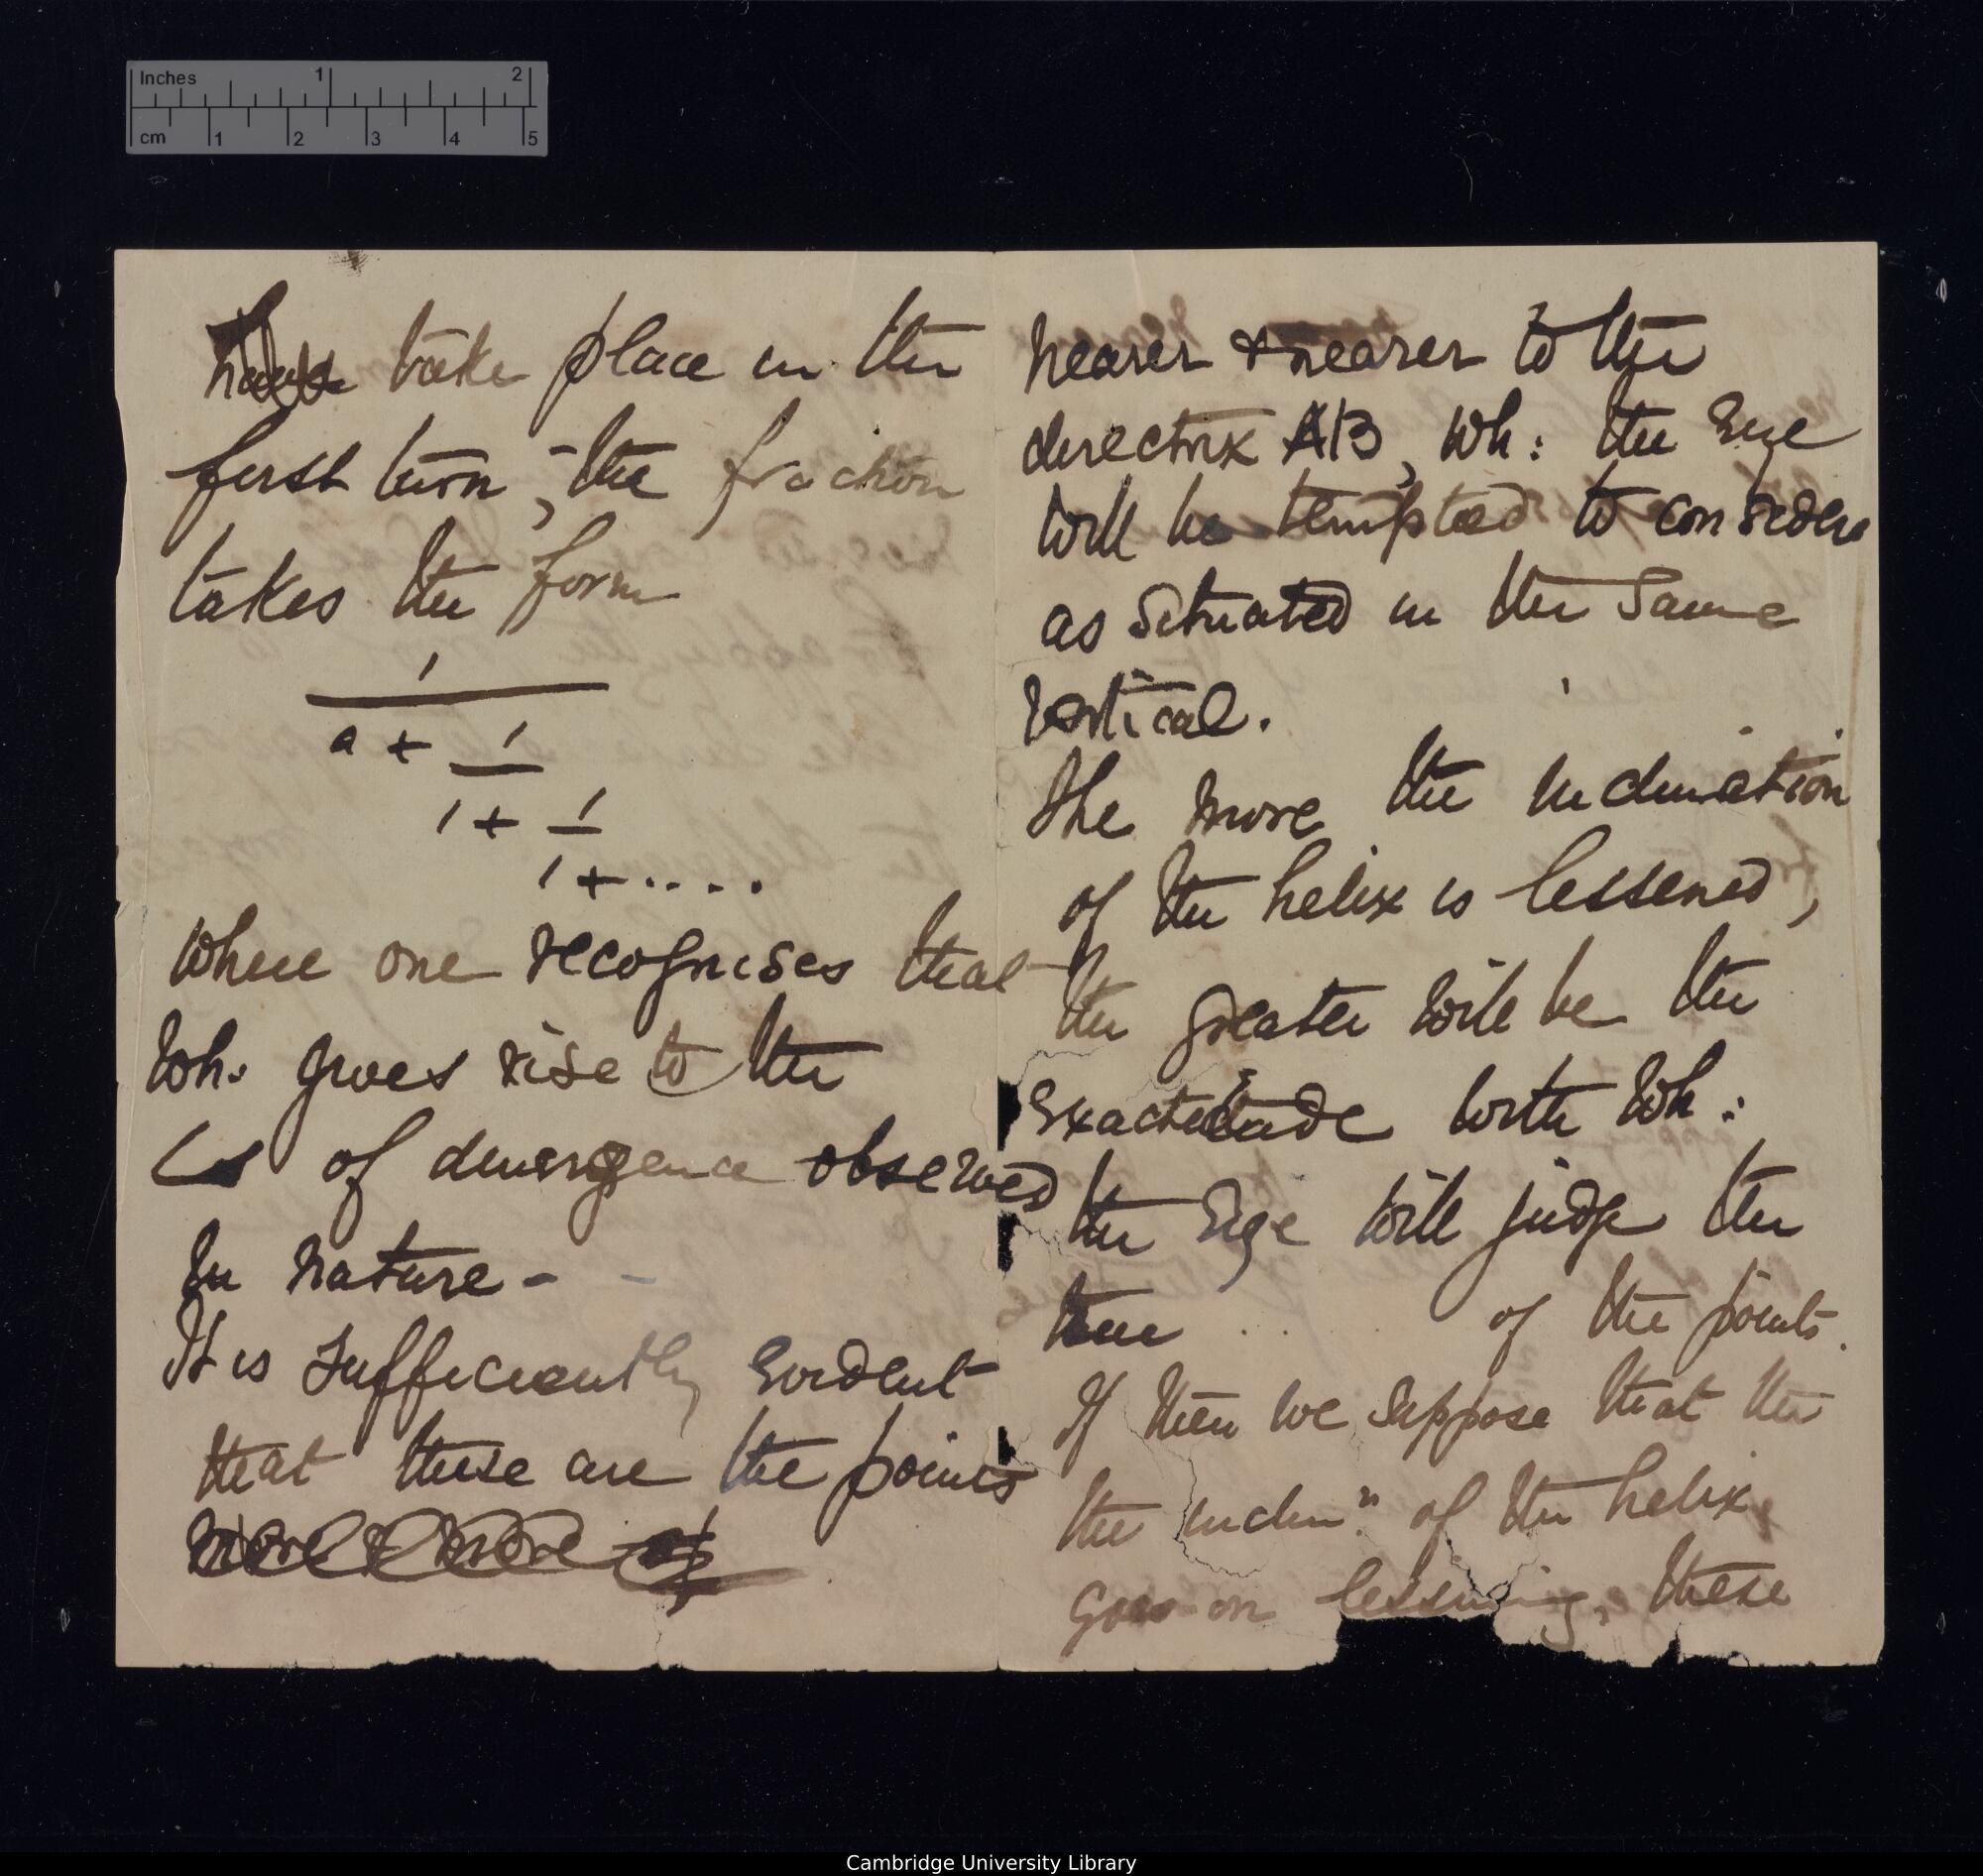 Inches 1 2
cm 1 2 3 4 5
take place in the
first turn, the fraction
takes the form
1
a + 1
1 + 1
1 + ....
where one recognises that
wh: gives rise to the
of divergence observed
in nature -
It is sufficiently evident
that these are the points
more & more of
nearer & nearer to the
directrix AB, wh: the Eye
will be tempted to consider
as situated in the same
vertical.
The more the inclination
of the helix is lessened,
the greater will be the
exactitude with wh:
the Eye will judge the
true . . . of the points.
If then we suppose that the
the inclinn of the helix
goes on lessening, these
Cambridge University Library